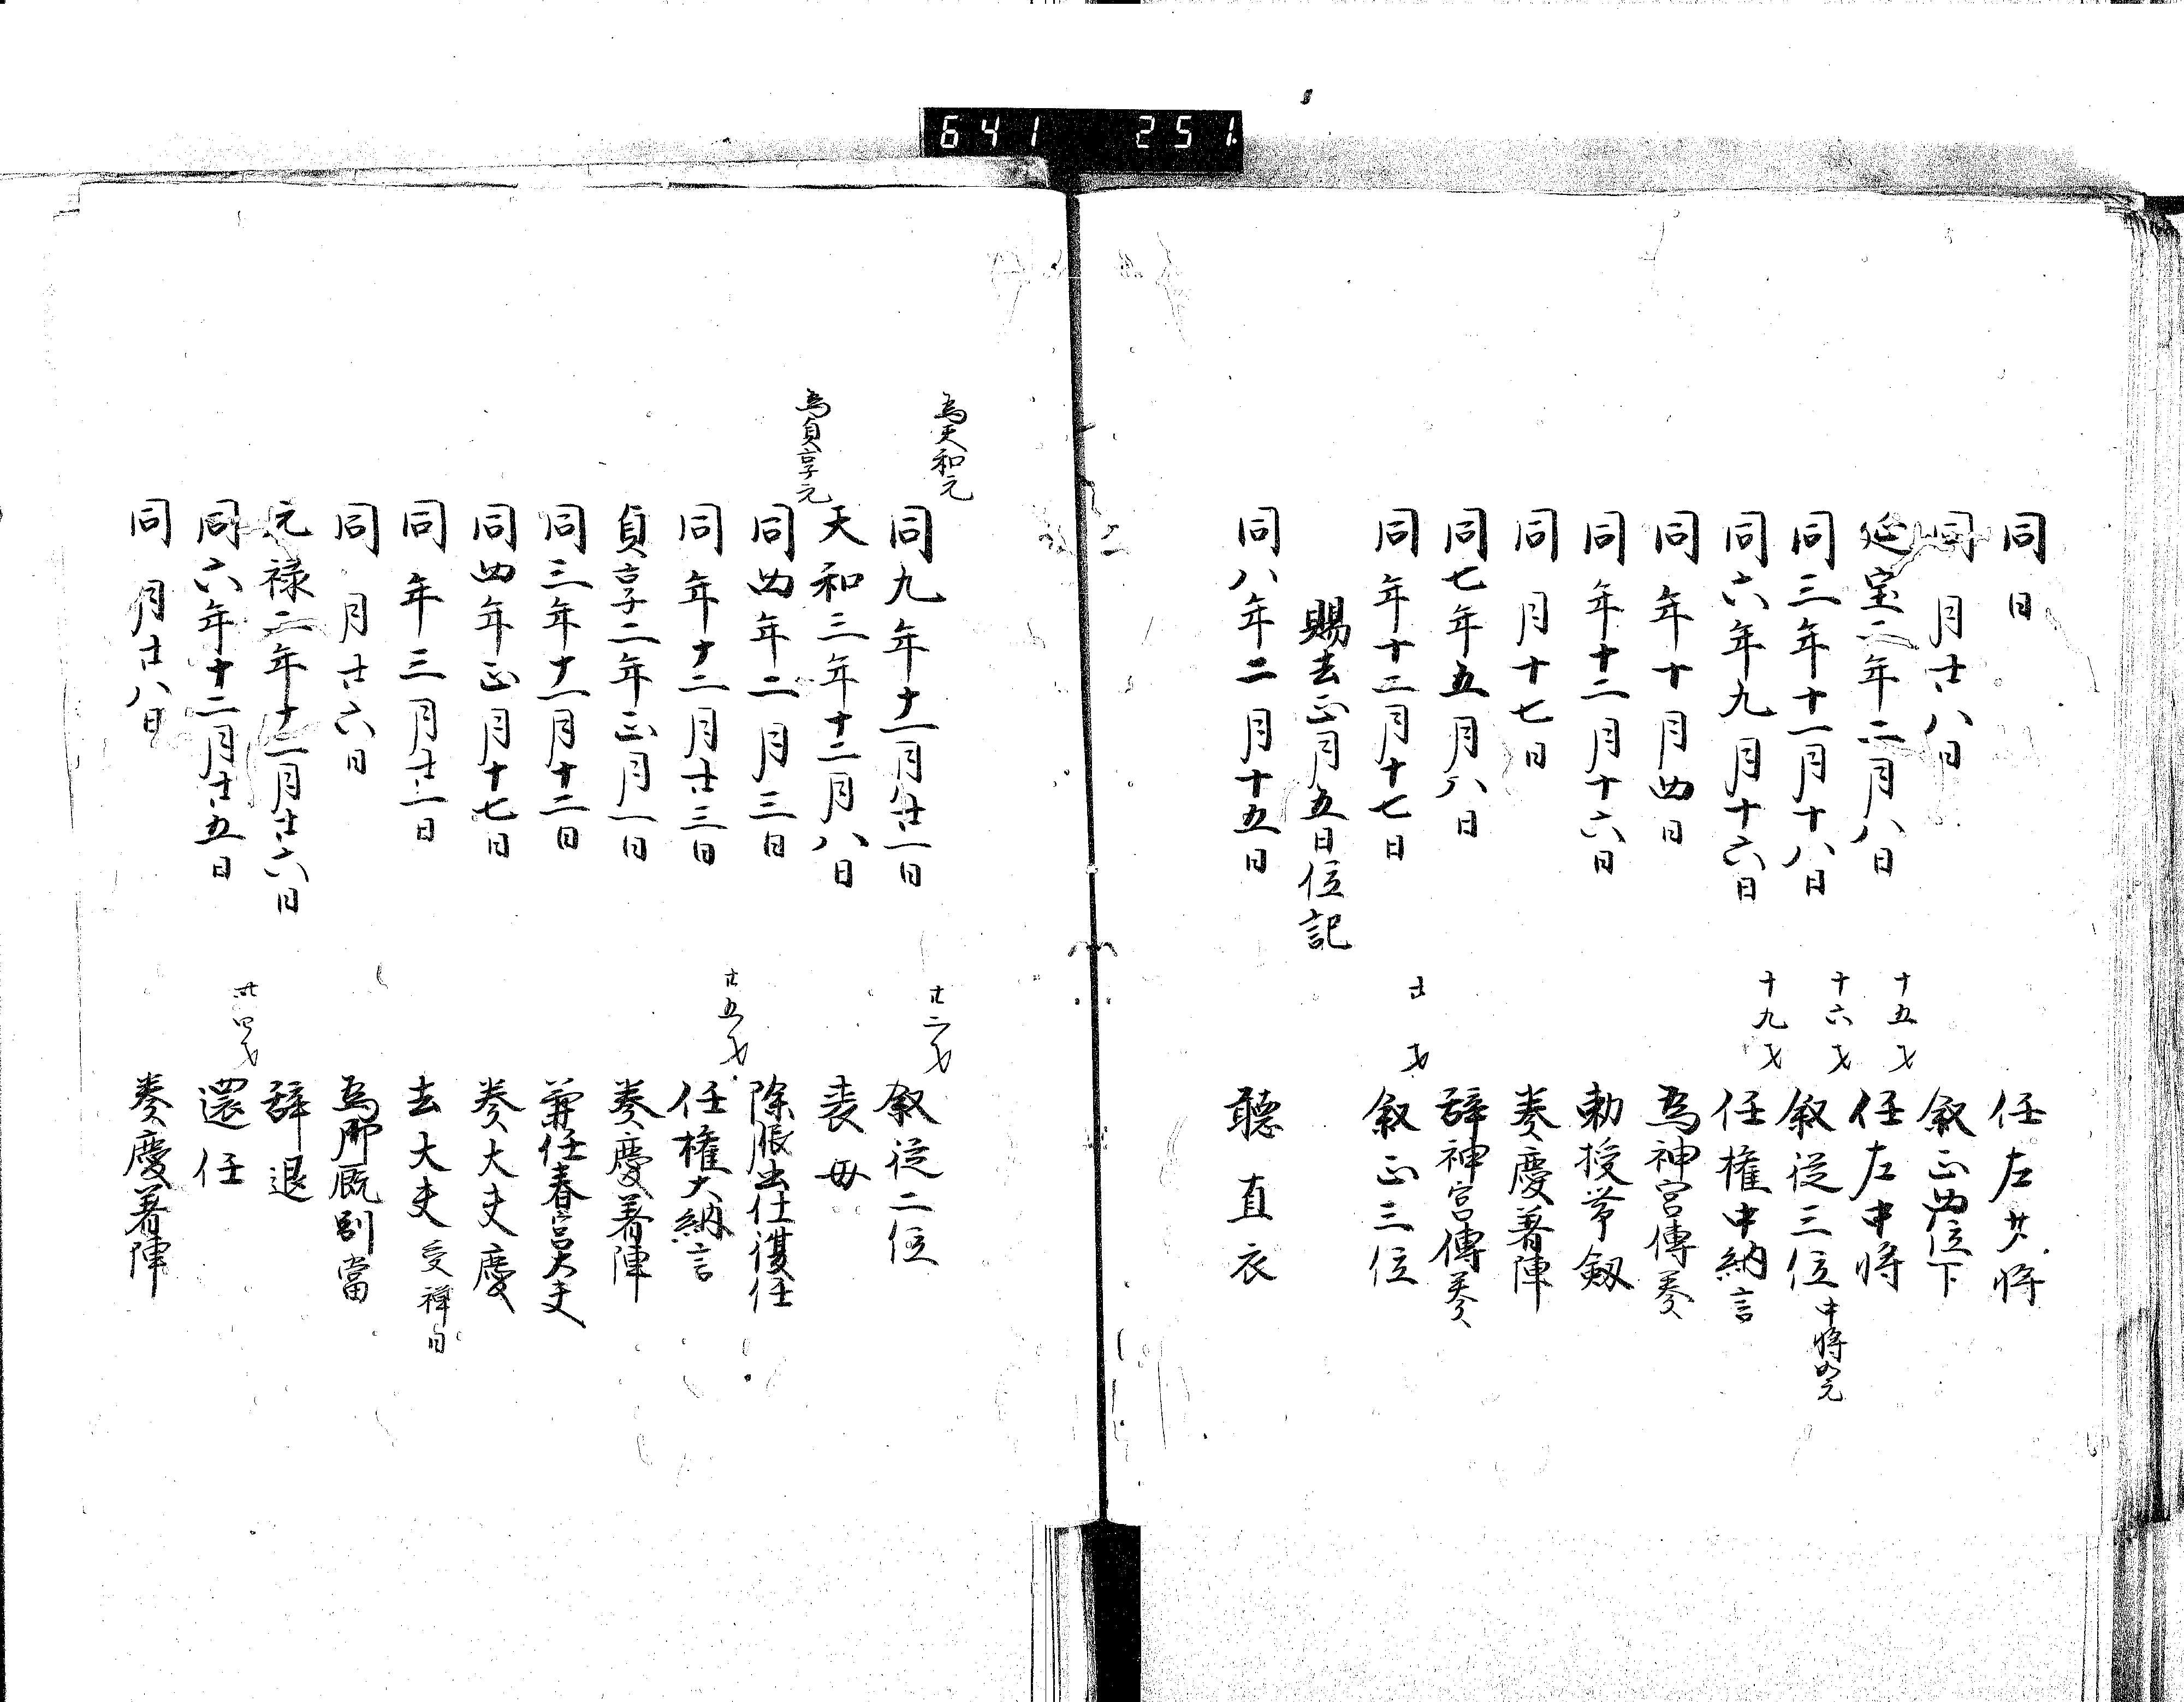 641 251
同日 任左少将
同月廿八日 叙正四位下
延宝二年二月八日 十五才 任左中将
同三年十一月十八日 十六才 叙従三位 中将如元
同六年九月十六日 十九才 任権中納言
同年十月四日 為神宮傳奏
同年十二月十六日 勅授帯剱
同月十七日 奏慶着陣
同七年五月八日 辞神宮傳奏
同年十二月十七日 廿才 叙正三位
賜去正月五日位記
同八年二月十五日 聴直衣
為天和元
同九年十一月廿一日 廿二才 叙従二位
天和三年十二月八日 喪母
為貞享元
同四年二月三日 除服出仕復任
同年十二月廿三日 廿五才 任権大納言
貞享二年正月一日 奏慶着陣
同三年十一月十二日 兼任春宮大夫
同四年正月十七日 奏大夫慶
同年三月廿一日 去大夫 受禅日
同月廿六日 為御厩別當
元禄二年十二月廿六日 辞退
同六年十二月廿五日 卅四才 還任
同月廿八日 奏慶着陣